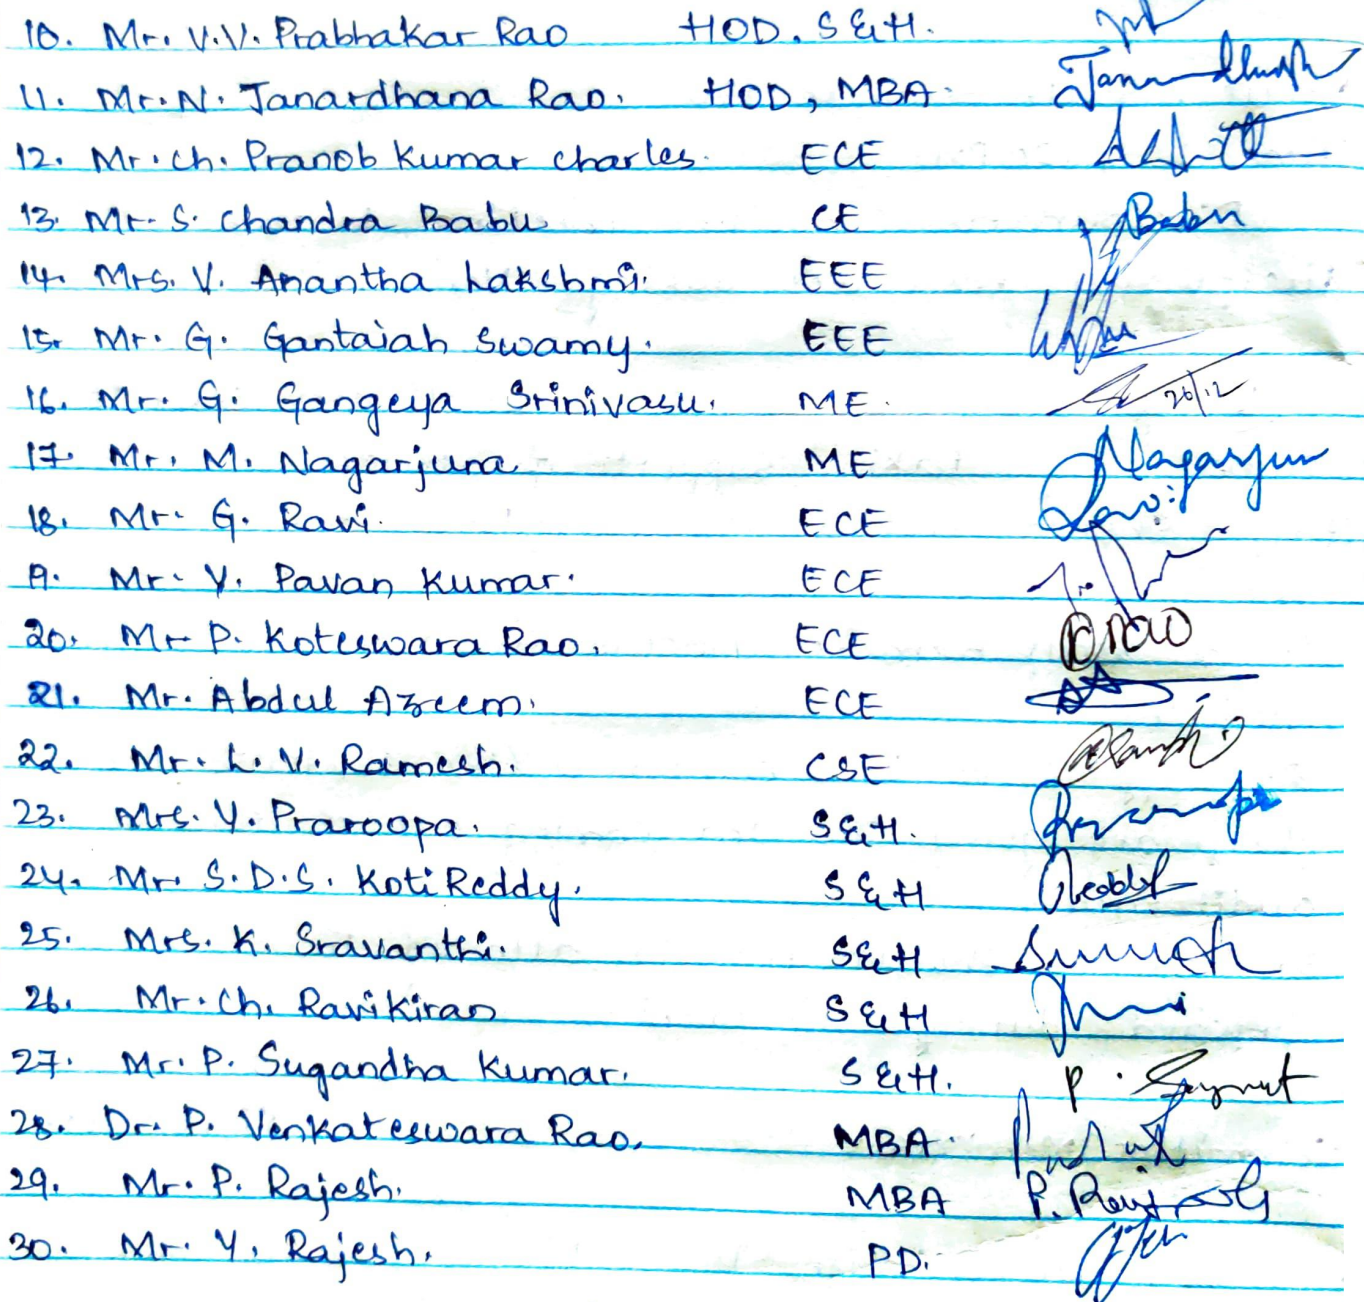 10. Mr. V.V. Prabhakar Rao HOD, S&H.
11. Mr. N. Janardhana Rao. HOD, MBA.
12. Mr. Ch. Pranob Kumar Charles. ECE
13. Mr. S. Chandra Babu CE Babu
14. Mrs. V. Anantha Lakshmi. EEE
15. Mr. G. Gantaiah Swamy. EEE
16. Mr. G. Gangeya Srinivasu. ME. 26/12
17. Mr. M. Nagarjuna ME Nagarjun
18. Mr. G. Ravi. ECE Ravi
19. Mr. Y. Pavan Kumar. ECE
20. Mr P. Koteswara Rao. ECE
21. Mr. Abdul Azeem. ECE
22. Mr. L. V. Ramesh. CSE
23. Mrs. Y. Praroopa. S&H.
24. Mr. S.D.S. Koti Reddy. S&H
25. Mrs. K. Sravanthi. S&H
26. Mr. Ch. Ravikiran S&H
27. Mr. P. Sugandha Kumar. S&H.
28. Dr. P. Venkateswara Rao. MBA.
29. Mr. P. Rajesh. MBA
30. Mr. Y. Rajesh. PD.